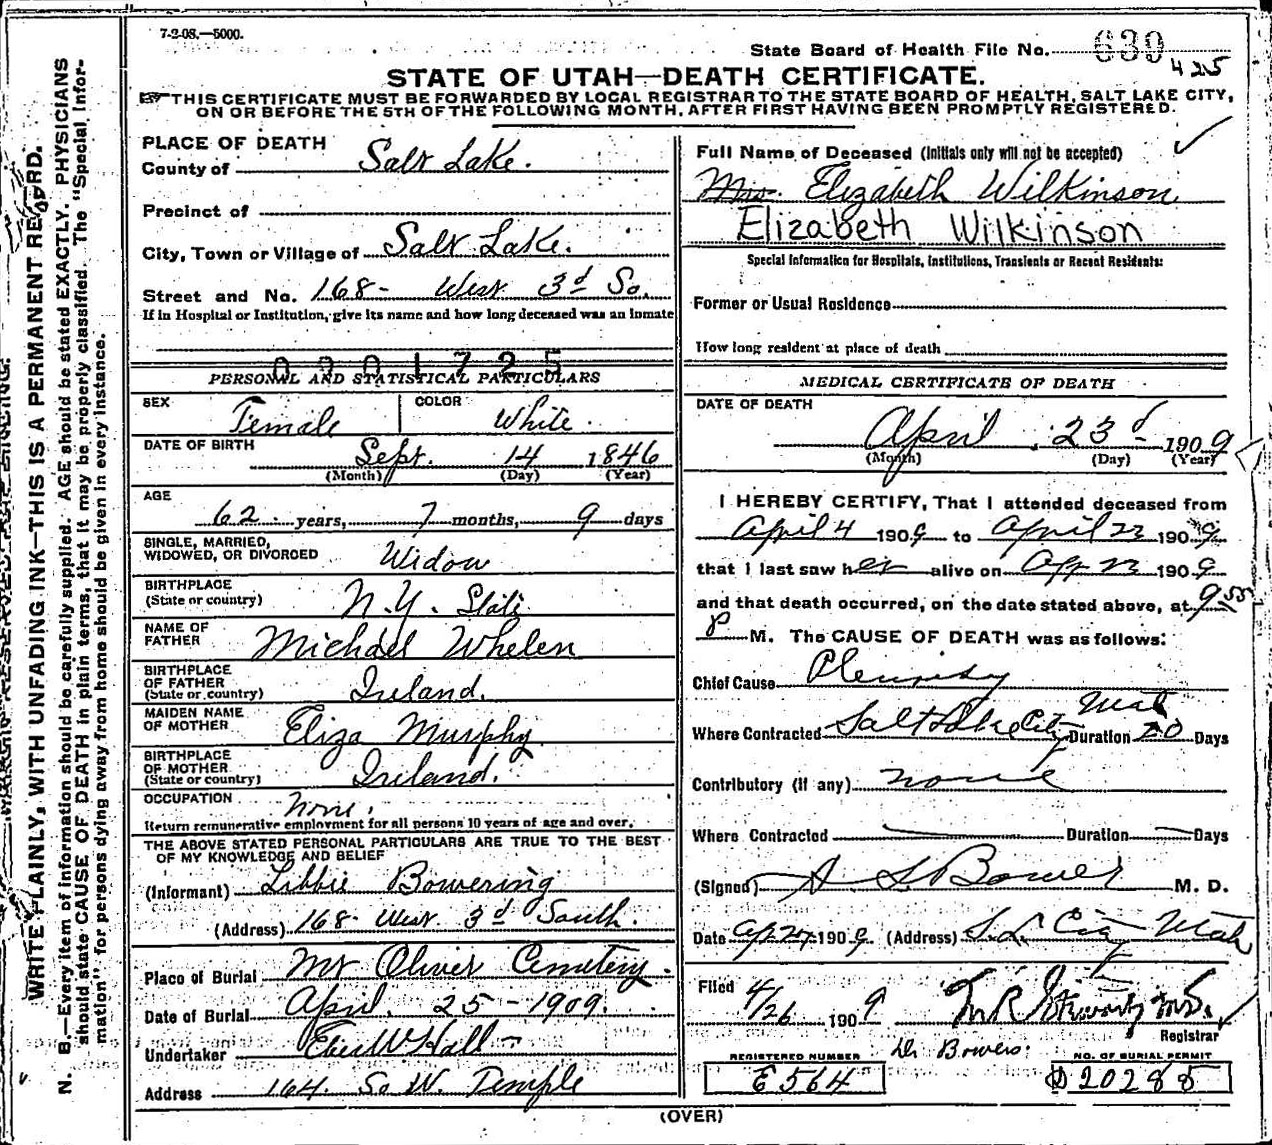 7-2-08.—5000.
State Board of Health File No. 639
425
STATE OF UTAH—DEATH CERTIFICATE.
THIS CERTIFICATE MUST BE FORWARDED BY LOCAL REGISTRAR TO THE STATE BOARD OF HEALTH, SALT LAKE CITY,
ON OR BEFORE THE 5TH OF THE FOLLOWING MONTH, AFTER FIRST HAVING BEEN PROMPTLY REGISTERED.
WRITE PLAINLY, WITH UNFADING INK—THIS IS A PERMANENT RECORD.
N. B.—Every item of information should be carefully supplied. AGE should be stated EXACTLY. PHYSICIANS
should state CAUSE OF DEATH in plain terms, that it may be properly classified. The "Special Infor-
mation" for persons dying away from home should be given in every instance.
PLACE OF DEATH
County of Salt Lake.
Precinct of
City, Town or Village of Salt Lake.
Street and No. 168- West 3d So.
If in Hospital or Institution, give its name and how long deceased was an inmate
0201725
PERSONAL AND STATISTICAL PARTICULARS
SEX Female COLOR White.
DATE OF BIRTH Sept. 14 1846
(Month) (Day) (Year)
AGE
62 years, 7 months, 9 days
SINGLE, MARRIED,
WIDOWED, OR DIVORCED Widow
BIRTHPLACE
(State or country) N.Y. State
NAME OF
FATHER Michael Whelen
BIRTHPLACE
OF FATHER
(State or country) Ireland.
MAIDEN NAME
OF MOTHER Eliza Murphy
BIRTHPLACE
OF MOTHER
(State or country) Ireland.
OCCUPATION None.
Return remunerative employment for all persons 10 years of age and over.
THE ABOVE STATED PERSONAL PARTICULARS ARE TRUE TO THE BEST
OF MY KNOWLEDGE AND BELIEF
(Informant) Libbie Bowering
(Address) 168- West 3d South.
Place of Burial Mt Olivet Cemetery.
Date of Burial April. 25-1909.
Undertaker Eber W Hall
Address 164. So W. Temple
Full Name of Deceased (Initials only will not be accepted)
Mrs. Elizabeth Wilkinson
Elizabeth Wilkinson
Special Information for Hospitals, Institutions, Transients or Recent Residents:
Former or Usual Residence
How long resident at place of death
MEDICAL CERTIFICATE OF DEATH
DATE OF DEATH
April 23d 1909
(Month) (Day) (Year)
I HEREBY CERTIFY, That I attended deceased from
April 4 1909 to April 23 1909
that I last saw her alive on Apr 23 1909
and that death occurred, on the date stated above, at 9 55
P M. The CAUSE OF DEATH was as follows:
Chief Cause Pleurisy
Where Contracted Salt Lake City Utah Duration 20 Days
Contributory (if any) none
Where Contracted Duration Days
(Signed) A S Bower M. D.
Date Apr 24 1909. (Address) S.L. City Utah
Filed 4/26 1909
Registrar
Dr Bowers.
REGISTERED NUMBER
E564
NO. OF BURIAL PERMIT
D20285
(OVER)